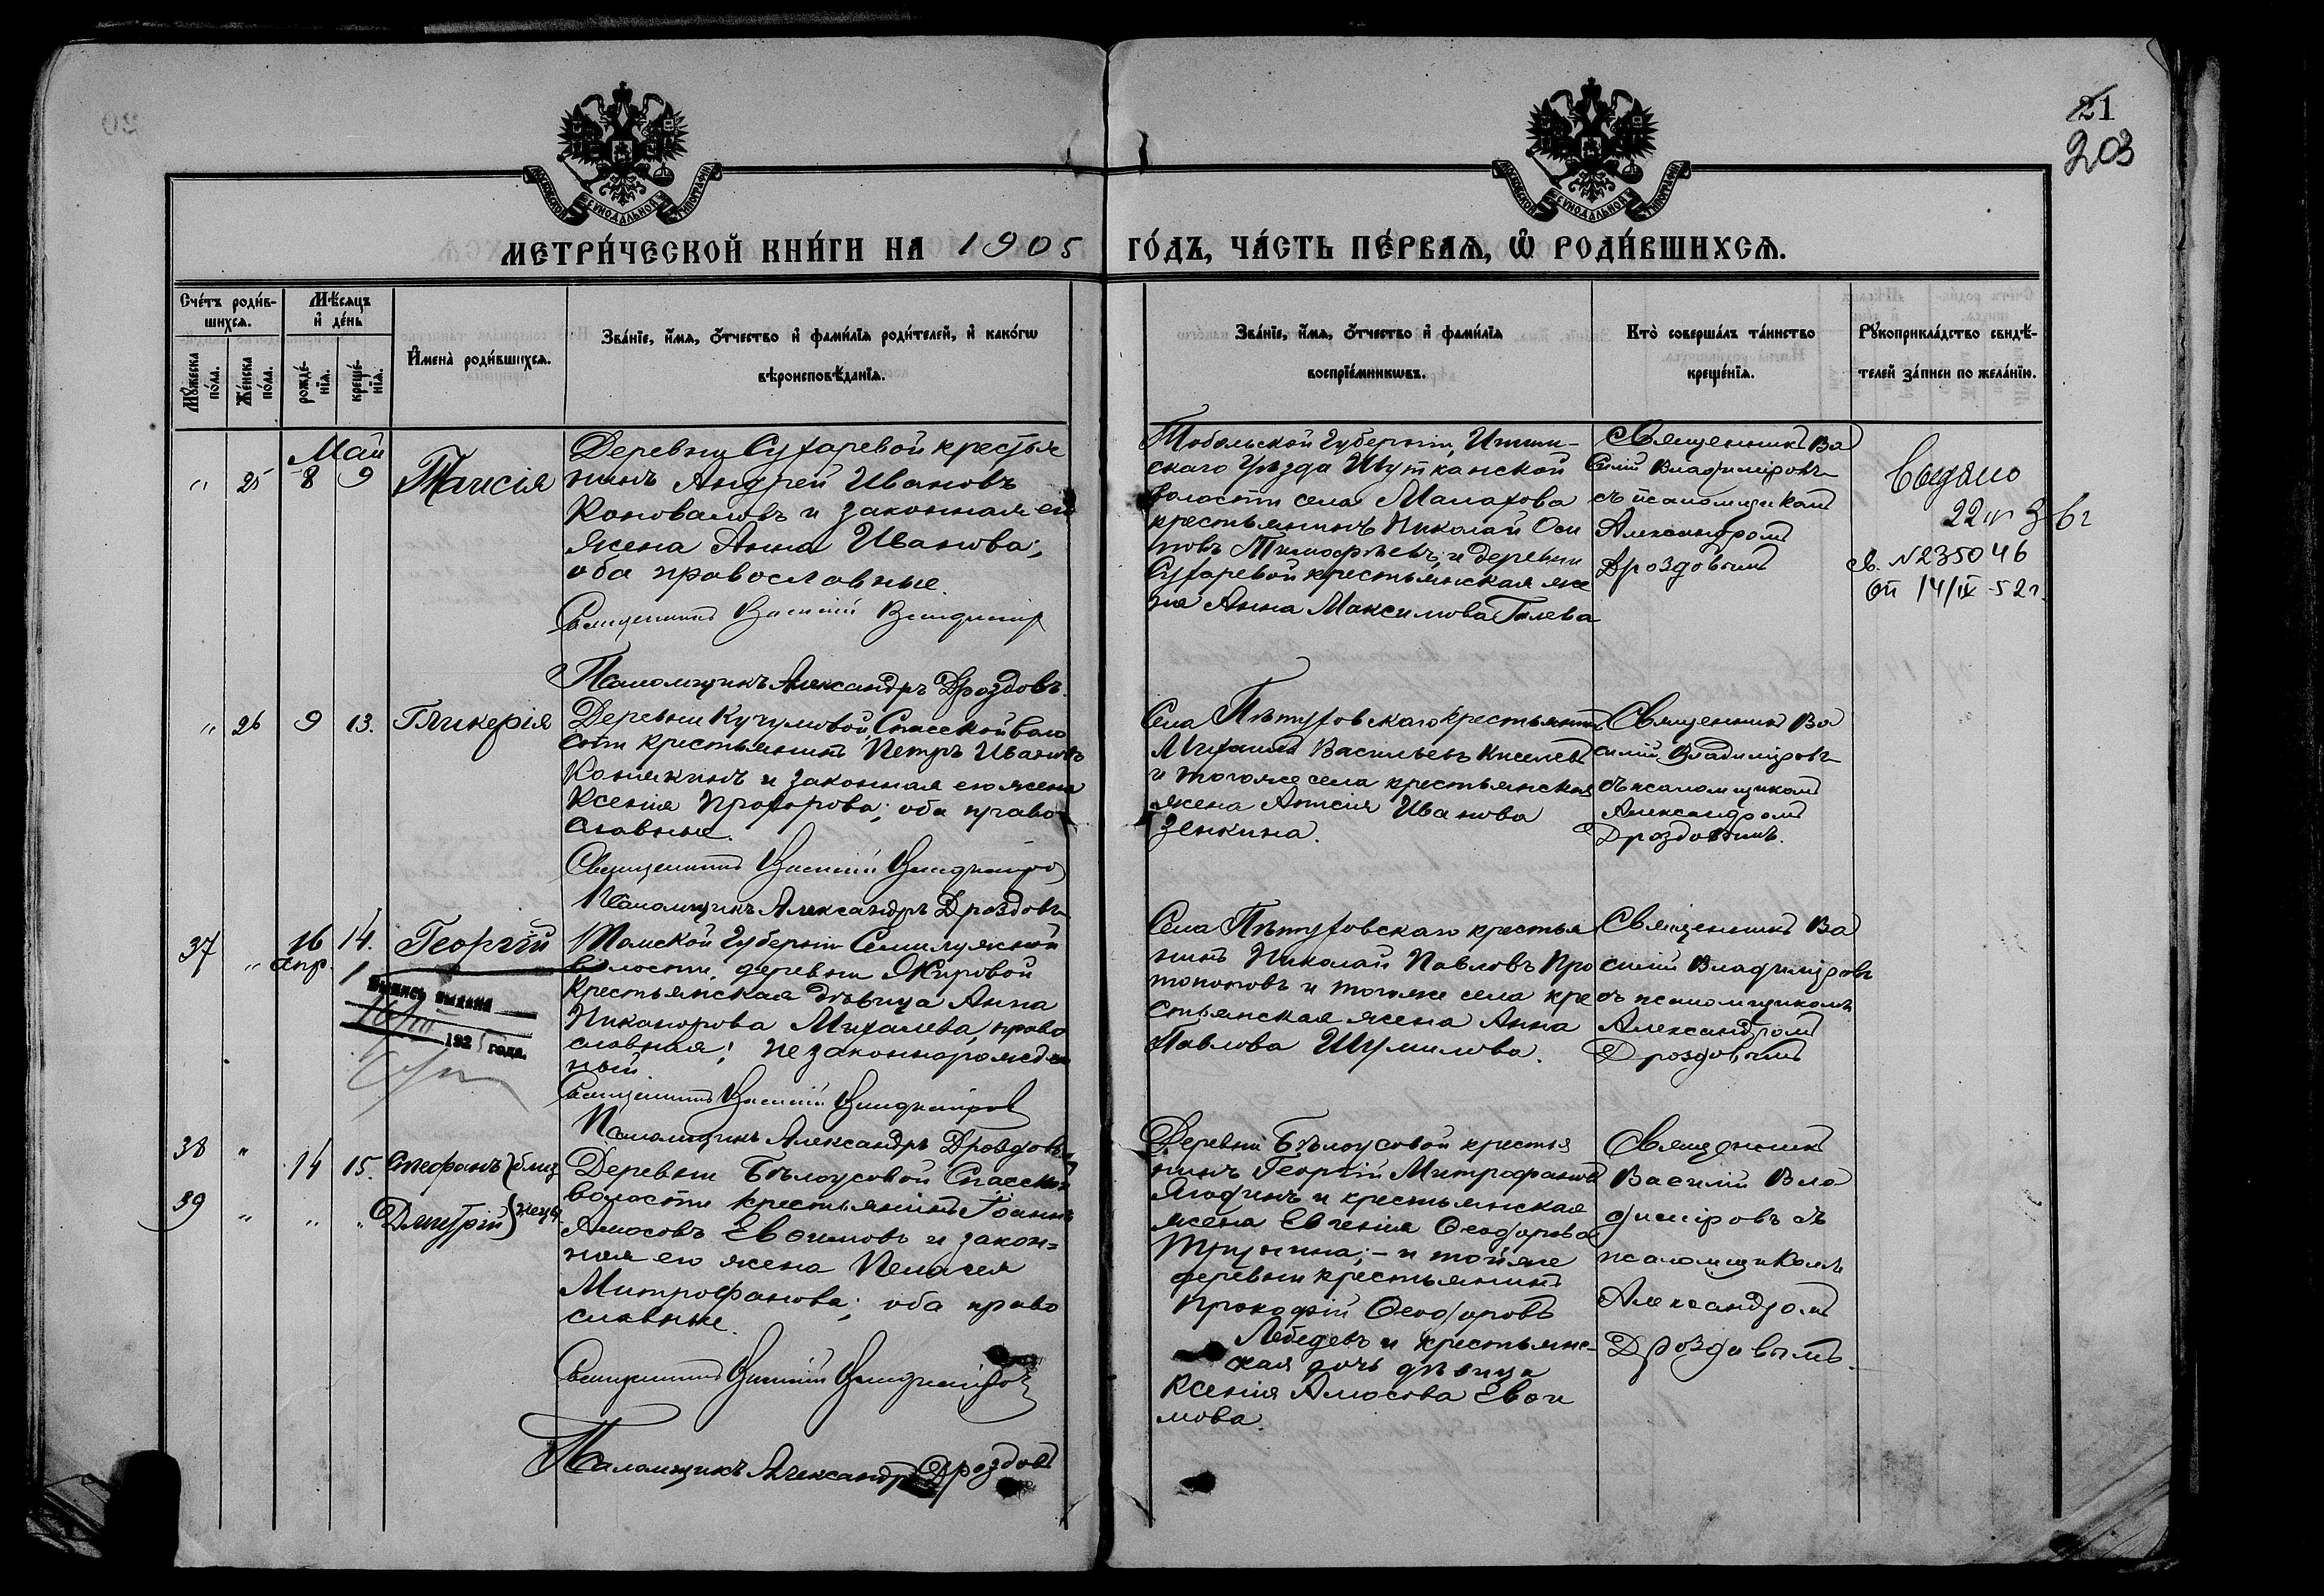 21
203
МОСКОВСКОЙ СѴНОДАЛЬНОЙ ТИПОГРАФІИ
МОСКОВСКОЙ СѴНОДАЛЬНОЙ ТИПОГРАФІИ
МЕТРИ́ЧЕСКОЙ КНИ́ГИ НА 1905 ГО́ДЪ, ЧА́СТЬ ПЕ́РВАѦ, Ѽ РОДИ́ВШИХСѦ.
Сче́тъ роди́в-
шихсѧ.
Мѣ́сѧцъ
и҆ де́нь
Мꙋ́жеска
по́ла.
Же́нска
по́ла.
рожде́-
нїѧ.
креще́-
нїѧ.
И҆мена̀ роди́вшихсѧ.
Зва́нїе, и҆́мѧ, ѻ҆́тчество и҆ фами́лїѧ роди́телей, и҆ како́гѡ
вѣроисповѣ́данїѧ.
Зва́нїе, и҆́мѧ, ѻ҆́тчество и҆ фами́лїѧ
воспрїе́мникѡвъ.
Кто̀ соверша́лъ та́инство
креще́нїѧ.
Рꙋкоприкла́дство свидѣ́-
телей за́писи по жела́нїю.
Май
" 25 8 9 Таисія
Деревни Сухаревой крестья
нинъ Андрей Ивановъ
Коноваловъ и законная его
жена Анна Иванова;
оба православные.
Священникъ Василій Владиміро
Псаломщикъ Александръ Дроздовъ.
Тобольской губерніи, Ишим-
скаго Уѣзда Ивутканской
волости села Малахова
крестьянинъ Николай Оси
повъ Тимофѣевъ; и деревни
Сухаревой крестьянская же
на Анна Максимова Гилева
Священникъ Ва
силій Владиміровъ
съ псаломщикомъ
Александромъ
Дроздовымъ
св. №235046
от 14/IX-52г.
" 26 9 13. Гликерія
Деревни Кучумовой, Спасской воло
сти крестьянинъ Петръ Ивановъ
Конякинъ и законная его жена
Ксенія Прохорова; оба право
славные.
Священникъ Василій Владиміро
Псаломщикъ Александръ Дроздовъ
Села Пѣтуховскаго крестьянинъ
Михаилъ Васильевъ Киселевъ
и тогоже села крестьянская
жена Анисия Иванова
Зенкина.
Священникъ Ва
силій Владиміровъ
съ псаломщикомъ
Александромъ
Дроздовымъ.
37 " 16 14. Георгій
апр. 1
Выпись выдана
192 года.
Томской губерніи Семилужной
волости, деревни Жировой
крестьянская дѣвица Анна
Никанорова Михалева, право
славная; незаконнорожден
ный
Священникъ Василій Владиміров
Псаломщикъ Александръ Дроздовъ
Села Пѣтуховскаго крестья
нинъ Николай Павловъ Про
топоповъ и тогоже села кре
стьянская жена Анна
Павлова Шумилова.
Священникъ Ва
силій Владиміровъ
съ псаломщикомъ
Александромъ
Дроздовымъ
38 " 14 15. Стефанъ } близ
39 " " " Дмитрій } нецы
Деревни Бѣлоусовой Спасской
волости крестьянинъ Іоаннъ
Амосовъ Евѳимовъ и закон=
ная его жена Пелагея
Митрофанова; оба право
славные.
Священникъ Василій Владиміровъ
Псаломщикъ Александръ Дроздовъ
Деревни Бѣлоусовой крестья
нинъ Георгій Митрофановъ
Ягодинъ и крестьянская
жена Евгенія Ѳеодорова
; – и тойже
деревни крестьянинъ
Прокофій Ѳеодоровъ
Лебедевъ и крестьянс-
кая дочь дѣвица
Ксенія Амосова Евѳи
мова.
Священникъ
Василій Вла
диміровъ съ
псаломщикомъ
Александромъ
Дроздовымъ.